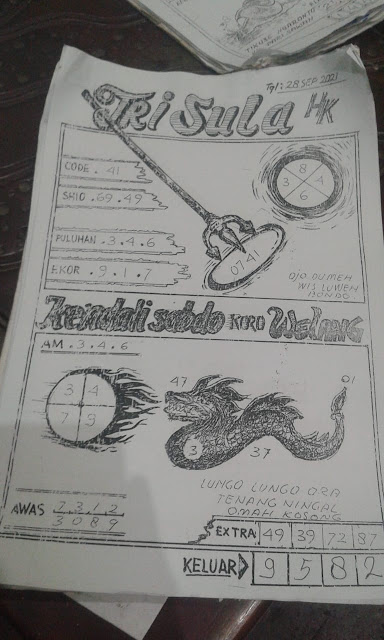 Tgl: 28 SEP 2021
Tri Sula HK
CODE . 41
SHIO . 69 . 49
PULUHAN . 3 . 4 . 6
EKOR . 9 . 1 . 7
0741
8
3 1
6
OJO DUMEH
WIS LUWEH
BONDO
Kendali sabdo KORO Walang
AM . 3 . 4 . 6
3 4
7 9
47
01
3
37
LUNGO LUNGO ORA
TENANG NINGAL
OMAH KOSONG
AWAS 7 3 1 2
3 0 8 9
EXTRA 49 39 72 87
KELUAR 9 5 8 2